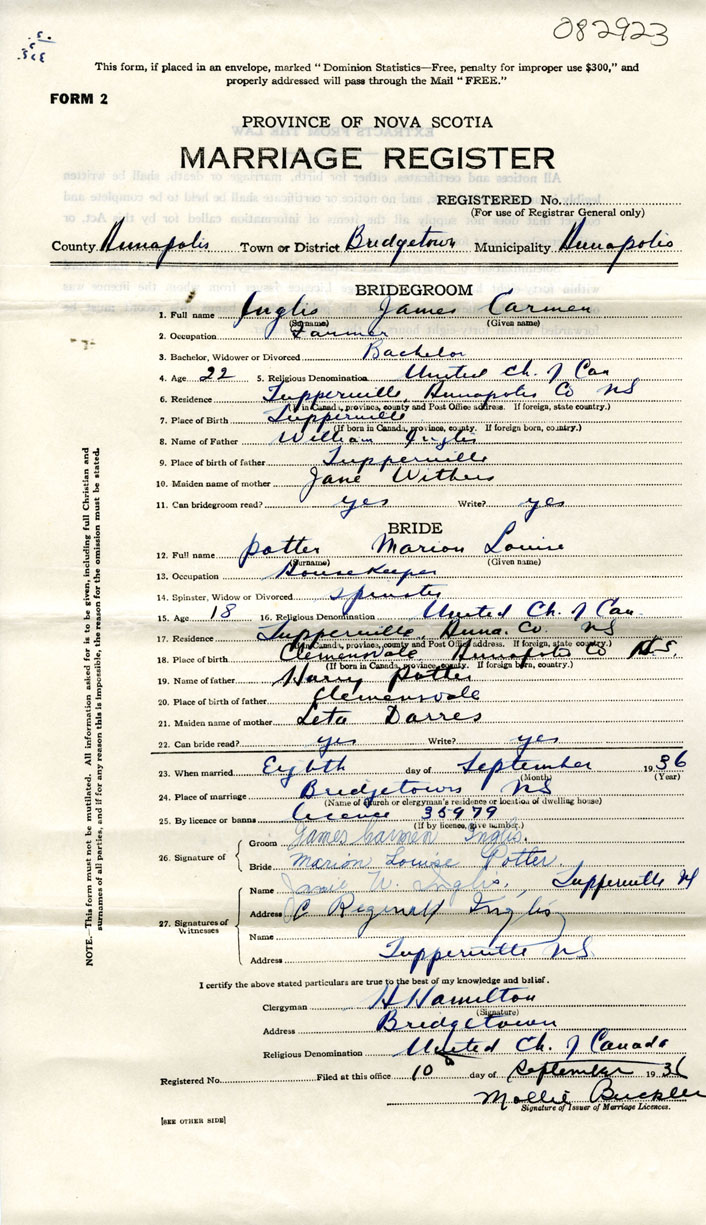 082923
This form, if placed in an envelope, marked "Dominion Statistics—Free, penalty for improper use $300," and
properly addressed will pass through the Mail "FREE."
FORM 2
PROVINCE OF NOVA SCOTIA
MARRIAGE REGISTER
REGISTERED No.
(For use of Registrar General only)
County Annapolis Town or District Bridgetown Municipality Annapolis
BRIDEGROOM
1. Full name Inglis James Carmen
(Surname) (Given name)
2. Occupation Farmer
3. Bachelor, Widower or Divorced Bachelor
4. Age 22 5. Religious Denomination United Ch. of Can
6. Residence Tupperville Annapolis Co NS
(If in Canada, province, county and Post Office address. If foreign, state country.)
7. Place of Birth Tupperville
(If born in Canada, province, county. If foreign born, country.)
8. Name of Father William Inglis
9. Place of birth of father Tupperville
10. Maiden name of mother Jane Withers
11. Can bridegroom read? yes Write? yes
BRIDE
12. Full name Potter Marion Louise
(Surname) (Given name)
13. Occupation Housekeeper
14. Spinster, Widow or Divorced Spinster
15. Age 18 16. Religious Denomination United Ch. of Can.
17. Residence Tupperville, Anna. Co. NS
(If in Canada, province, county and Post Office address. If foreign, state country.)
18. Place of birth Clementsvale Annapolis Co N.S.
(If born in Canada, province, county. If foreign born, country.)
19. Name of father Harry Potter
20. Place of birth of father Clementsvale
21. Maiden name of mother Leta Darres
22. Can bride read? yes Write? yes
23. When married Eighth day of September 1936
(Month) (Year)
24. Place of marriage Bridgetown NS
(Name of church or clergyman's residence or location of dwelling house)
25. By licence or banns Licence 35979
(If by licence, give number.)
26. Signature of
Groom James Carmen Inglis.
Bride Marion Louise Potter.
27. Signatures of Witnesses
Name Janie W. Inglis, Tupperville NS
Address C Reginald Inglis
Name
Address Tupperville NS.
I certify the above stated particulars are true to the best of my knowledge and belief.
Clergyman H Hamilton
(Signature)
Address Bridgetown
Religious Denomination United Ch. of Canada
Registered No. Filed at this office 10 day of September 1936
Mollie Buckler
Signature of Issuer of Marriage Licences.
[SEE OTHER SIDE]
NOTE.—This form must not be mutilated. All information asked for is to be given, including full Christian and
surnames of all parties, and if for any reason this is impossible, the reason for the omission must be stated.